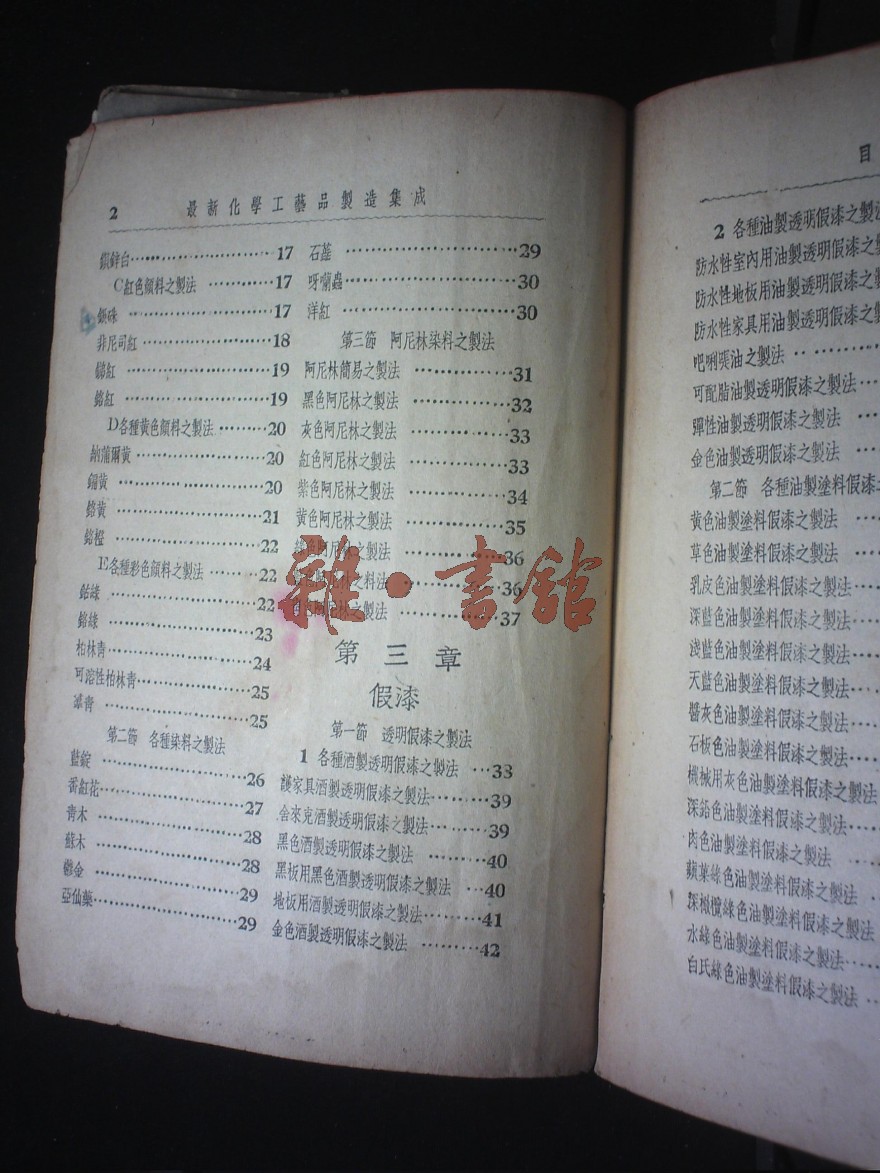 2 最新化學工藝品製造集成
鋅白……17
C紅色顏料之製法……17
銀硃……17
非尼司紅……18
銻紅……19
鉻紅……19
D各種黃色顏料之製法……20
納蒲爾黃……20
鎘黃……20
鉻黃……21
鉻橙……22
E各種彩色顏料之製法……22
鈷綠……22
鉻綠……23
柏林青……24
可溶性柏林青……25
青……25
第二節 各種染料之製法
藍錠……26
番紅花……27
青木……28
蘇木……28
鬱金……29
亞仙藥……29
石蕋……29
呀蘭蟲……30
洋紅……30
第三節 阿尼林染料之製法
阿尼林簡易之製法……31
黑色阿尼林之製法……32
灰色阿尼林之製法……33
紅色阿尼林之製法……33
紫色阿尼林之製法……34
黃色阿尼林之製法……35
色阿尼林之製法……36
料法……36
色阿尼林之製法……37
第三章
假漆
第一節 透明假漆之製法
1 各種酒製透明假漆之製法…33
護家具酒製透明假漆之製法……39
舍來克酒製透明假漆之製法……39
黑色酒製透明假漆之製法……40
黑板用黑色酒製透明假漆之製法…40
地板用酒製透明假漆之製法……41
金色酒製透明假漆之製法……42
雜·書館
目
2 各種油製透明假漆之製法
防水性室內用油製透明假漆之製
防水性地板用油製透明假漆之製
防水性家具用油製透明假漆之製
吧唎㗎油之製法……
可配脂油製透明假漆之製法…
彈性油製透明假漆之製法…
金色油製透明假漆之製法…
第二節 各種油製塗料假漆
黃色油製塗料假漆之製法…
草色油製塗料假漆之製法…
乳皮色油製塗料假漆之製法…
深藍色油製塗料假漆之製法…
淺藍色油製塗料假漆之製法…
天藍色油製塗料假漆之製法…
醬灰色油製塗料假漆之製法…
石板色油製塗料假漆之製法…
機械用灰色油製塗料假漆之製法
深鉛色油製塗料假漆之製法…
肉色油製塗料假漆之製法…
蘋葉綠色油製塗料假漆之製法…
深橄欖綠色油製塗料假漆之製法
水綠色油製塗料假漆之製法…
白氏綠色油製塗料假漆之製法…